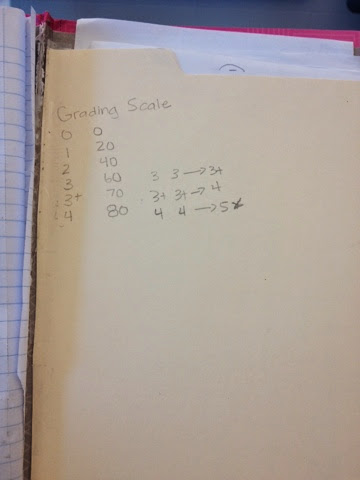 Grading Scale
0 0
1 20
2 40
3 60 3 3 → 3+
3+ 70 3+ 3+ → 4
4 80 4 4 → 5